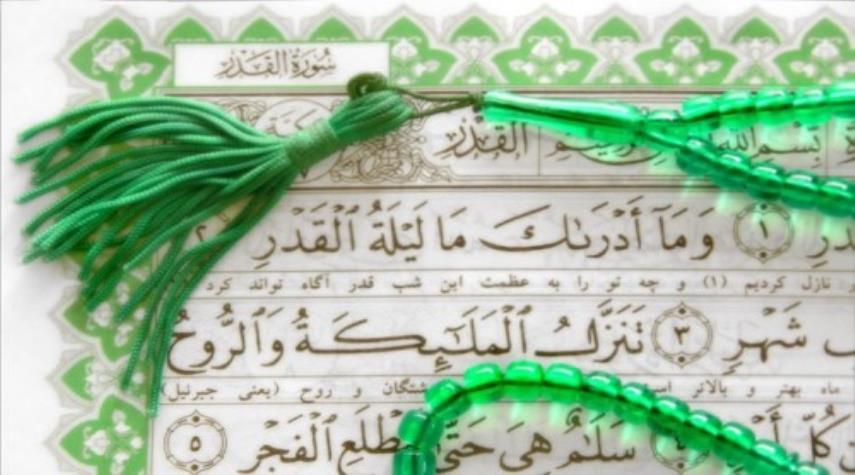 سُورَةُ القَدْرِ
القَدْرِ بِسْمِ اللهِ
دْرِ ١ وَمَآ أَدْرَىٰكَ مَا لَيْلَةُ ٱلْقَدْرِ ٢
نازل کردیم (۱) و چه تو را به عظمت این شب قدر آگاه تواند کرد
شَهْرٍ ٣ تَنَزَّلُ ٱلْمَلَٰٓئِكَةُ وَٱلرُّوحُ
ماه بهتر و بالاتر شتگان و روح (یعنی جبرئیل)
كُلِّ سَلَٰمٌ هِىَ حَتَّىٰ مَطْلَعِ ٱلْفَجْرِ ٥